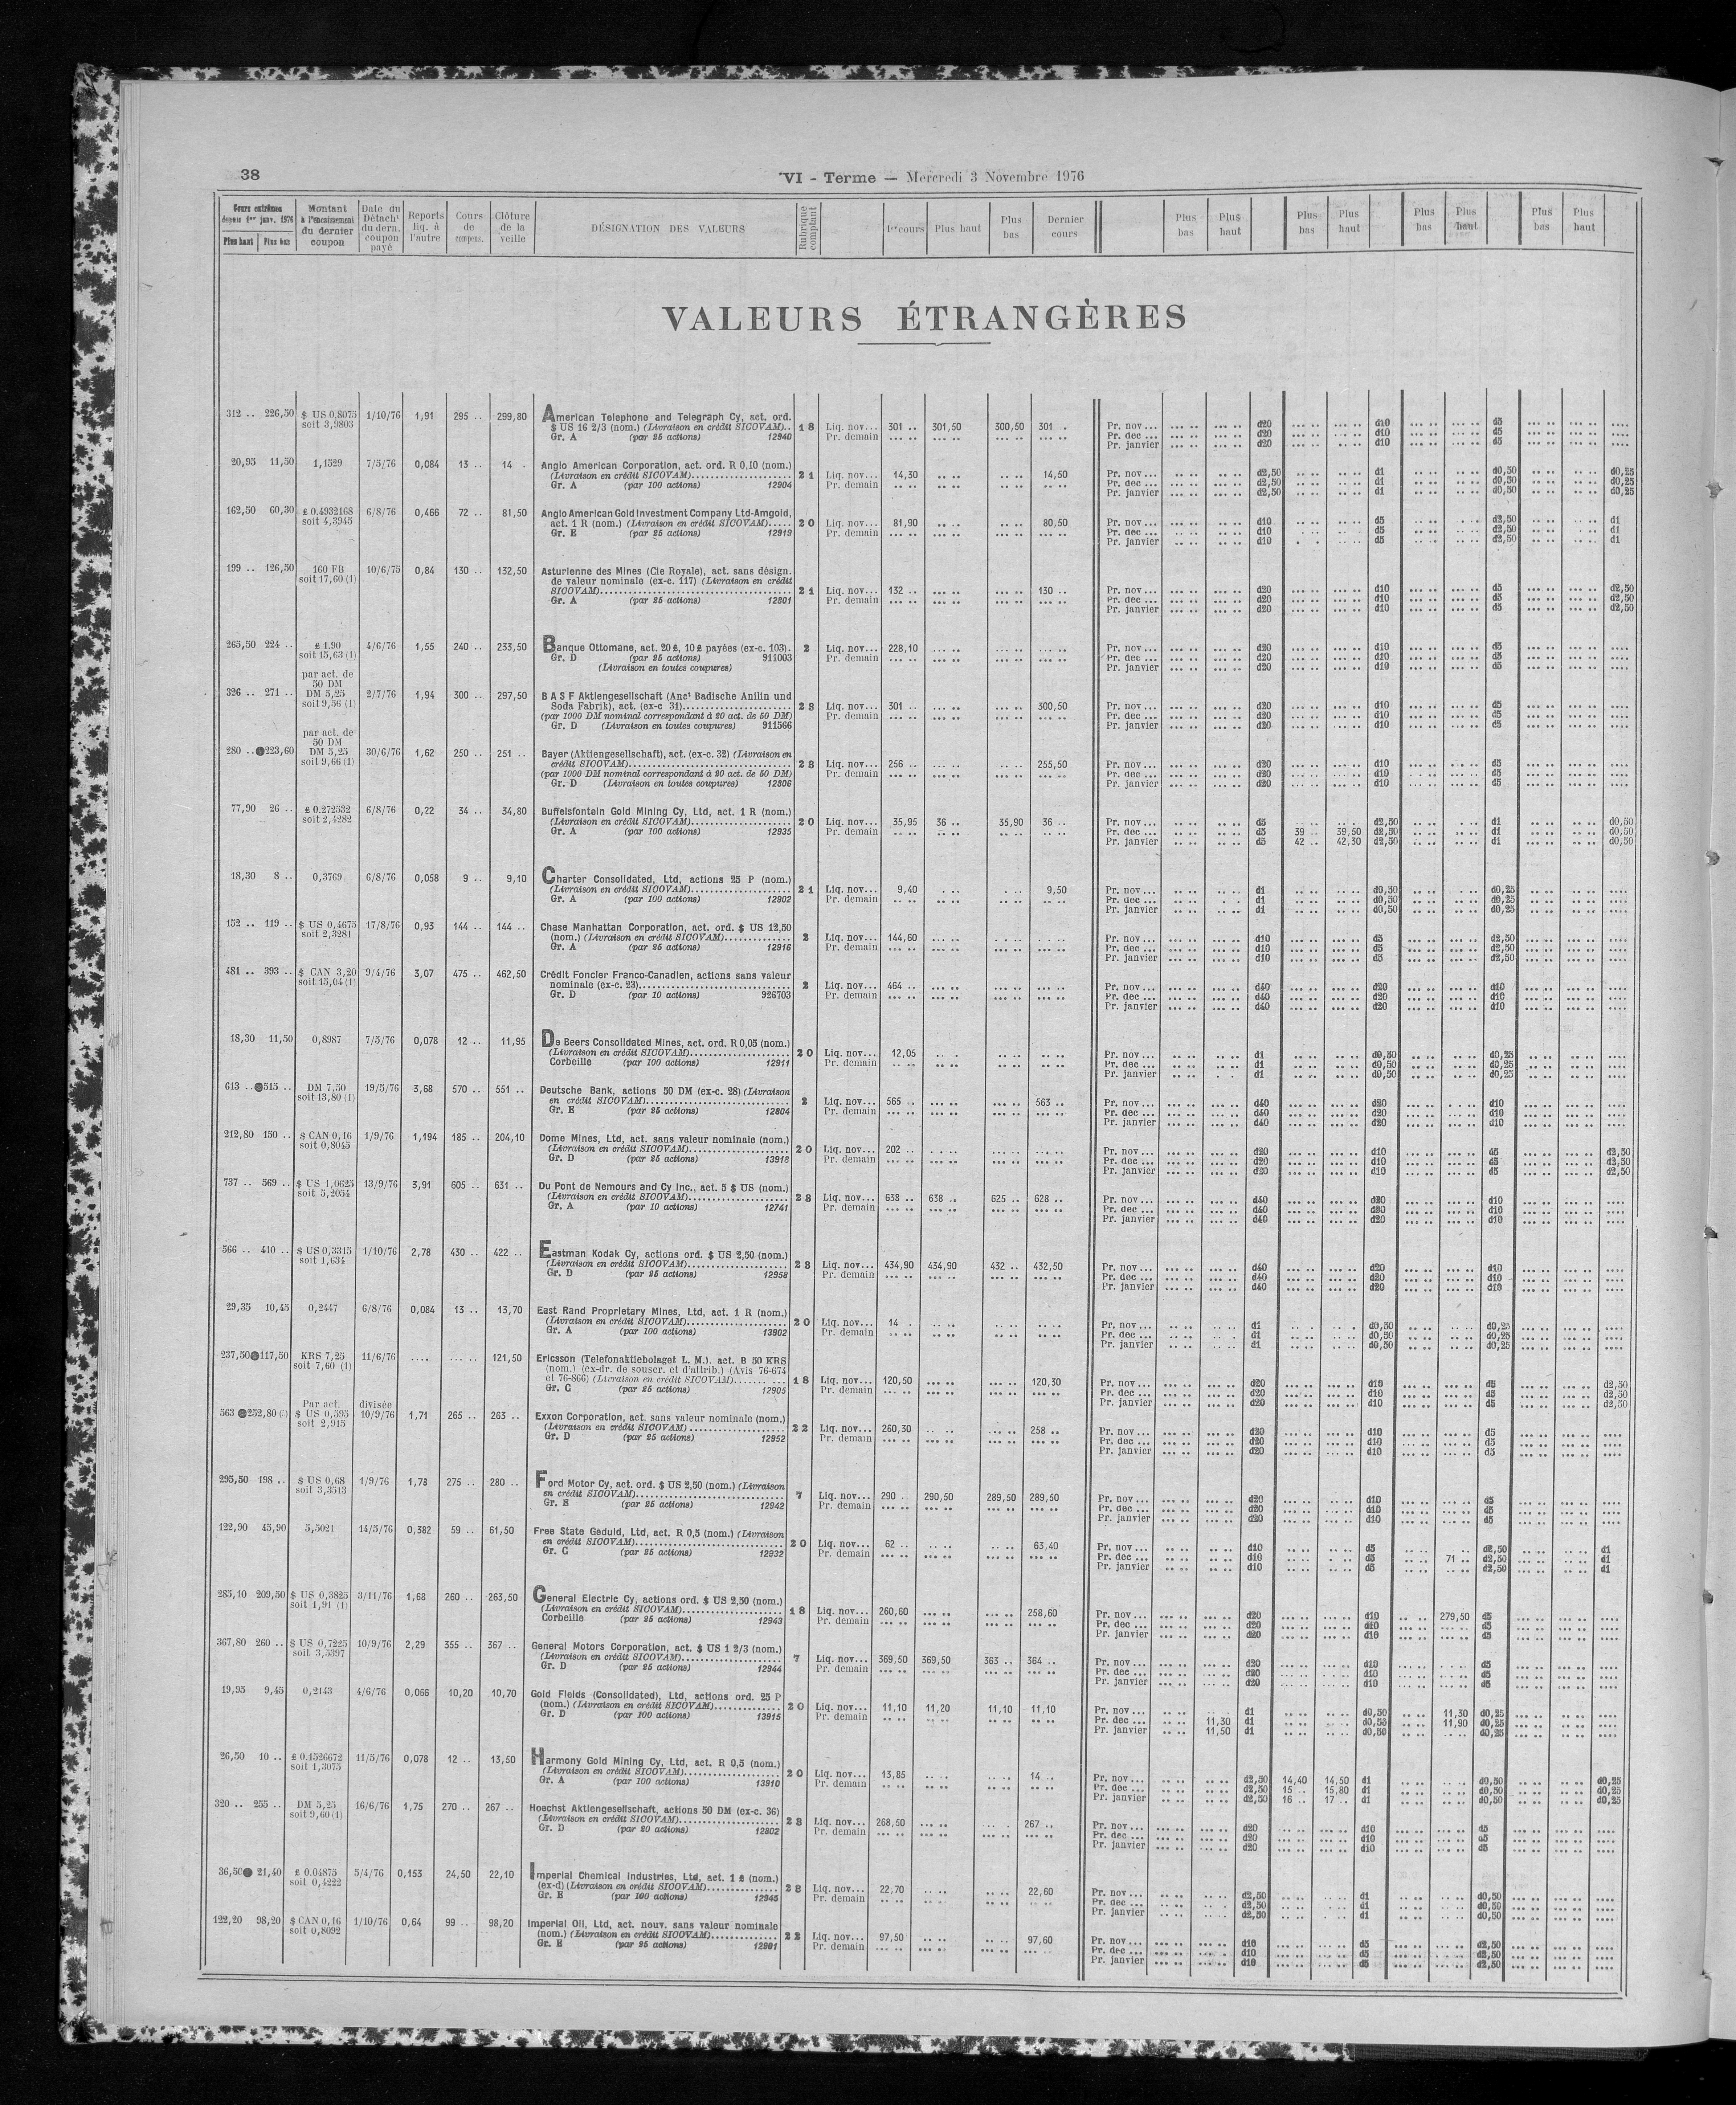 38
VI - Terme — Mercredi 3 Novembre 1976
Cours extrêmes depuis 1er janv. 1976 Plus haut Plus bas | Montant à l'encaissement du dernier coupon | Date du Détach' du dern. coupon payé | Reports liq. à l'autre | Cours de compens. | Clôture de la veille | DÉSIGNATION DES VALEURS | Rubrique comptant | 1er cours | Plus haut | Plus bas | Dernier cours | Plus bas | Plus haut | Plus bas | Plus haut | Plus bas | Plus haut | Plus bas | Plus haut
VALEURS ÉTRANGÈRES
312 .. 226,50 $ US 0,8075 1/10/76 1,91 295 .. 299,80 American Telephone and Telegraph Cy, act. ord.
soit 3,9803 $ US 16 2/3 (nom.) (Livraison en crédit SICOVAM).. 18 Liq. nov... 301 .. 301,50 300,50 301 . Pr. nov ... d20 d10 d5
Gr. A (par 25 actions) 12940 Pr. demain Pr. dec ... d20 d10 d5
Pr. janvier d20 d10 d5
20,95 11,50 1,1529 7/5/76 0,084 13 .. 14 . Anglo American Corporation, act. ord. R 0,10 (nom.)
(Livraison en crédit SICOVAM) 21 Liq. nov... 14,30 14,50 Pr. nov ... d2,50 d1 d0,50 d0,25
Gr. A (par 100 actions) 12904 Pr. demain Pr. dec ... d2,50 d1 d0,50 d0,25
Pr. janvier d2,50 d1 d0,50 d0,25
162,50 60,30 £ 0.4932168 6/8/76 0,466 72 .. 81,50 Anglo American Gold Investment Company Ltd-Amgold,
soit 4,3945 act. 1 R (nom.) (Livraison en crédit SICOVAM)..... 20 Liq. nov... 81,90 80,50 Pr. nov ... d10 d5 d2,50 d1
Gr. E (par 25 actions) 12919 Pr. demain Pr. dec ... d10 d5 d2,50 d1
Pr. janvier d10 d5 d2,50 d1
199 .. 126,50 160 FB 10/6/75 0,84 130 .. 132,50 Asturienne des Mines (Cie Royale), act. sans désign.
soit 17,60 (1) de valeur nominale (ex-c. 117) (Livraison en crédit
SICOVAM) 21 Liq. nov... 132 .. 130 .. Pr. nov ... d20 d10 d5 d2,50
Gr. A (par 25 actions) 12801 Pr. demain Pr. dec ... d20 d10 d5 d2,50
Pr. janvier d20 d10 d5 d2,50
265,50 224 .. £ 1.90 4/6/76 1,55 240 .. 233,50 Banque Ottomane, act. 20 £, 10 £ payées (ex-c. 103). 2 Liq. nov... 228,10 Pr. nov ... d20 d10 d5
soit 15,63 (1) Gr. D (par 25 actions) 911003 Pr. demain Pr. dec ... d20 d10 d5
(Livraison en toutes coupures) Pr. janvier d20 d10 d5
par act. de
50 DM
326 .. 271 .. DM 5,25 2/7/76 1,94 300 .. 297,50 B A S F Aktiengesellschaft (Anct Badische Anilin und
soit 9,56 (1) Soda Fabrik), act. (ex-c 31) 28 Liq. nov... 301 .. 300,50 Pr. nov ... d20 d10 d5
(par 1000 DM nominal correspondant à 20 act. de 50 DM) Pr. demain Pr. dec ... d20 d10 d5
Gr. D (Livraison en toutes coupures) 911566 Pr. janvier d20 d10 d5
par act. de
50 DM
280 .. ●223,60 DM 5,25 30/6/76 1,62 250 .. 251 .. Bayer (Aktiengesellschaft), act. (ex-c. 32) (Livraison en
soit 9,66 (1) crédit SICOVAM) 28 Liq. nov... 256 .. 255,50 Pr. nov ... d20 d10 d5
(par 1000 DM nominal correspondant à 20 act. de 50 DM) Pr. demain Pr. dec ... d20 d10 d5
Gr. D (Livraison en toutes coupures) 12806 Pr. janvier d20 d10 d5
77,90 26 .. £ 0.272532 6/8/76 0,22 34 .. 34,80 Buffelsfontein Gold Mining Cy, Ltd, act. 1 R (nom.)
soit 2,4282 (Livraison en crédit SICOVAM) 20 Liq. nov... 35,95 36 .. 35,90 36 .. Pr. nov ... d5 d2,50 d1 d0,50
Gr. A (par 100 actions) 12935 Pr. demain Pr. dec ... d5 39 .. 39,50 d2,50 d1 d0,50
Pr. janvier d5 42 .. 42,30 d2,50 d1 d0,50
18,30 8 .. 0,3769 6/8/76 0,058 9 .. 9,10 Charter Consolidated, Ltd, actions 25 P (nom.)
(Livraison en crédit SICOVAM) 21 Liq. nov... 9,40 9,50 Pr. nov ... d1 d0,50 d0,25
Gr. A (par 100 actions) 12902 Pr. demain Pr. dec ... d1 d0,50 d0,25
Pr. janvier d1 d0,50 d0,25
152 .. 119 .. $ US 0,4675 17/8/76 0,93 144 .. 144 .. Chase Manhattan Corporation, act. ord. $ US 12,50
soit 2,3281 (nom.) (Livraison en crédit SICOVAM) 2 Liq. nov... 144,60 Pr. nov ... d10 d5 d2,50
Gr. A (par 25 actions) 12916 Pr. demain Pr. dec ... d10 d5 d2,50
Pr. janvier d10 d5 d2,50
481 .. 393 .. $ CAN 3,20 9/4/76 3,07 475 .. 462,50 Crédit Foncier Franco-Canadien, actions sans valeur
soit 15,04 (1) nominale (ex-c. 23) 2 Liq. nov... 464 .. Pr. nov ... d40 d20 d10
Gr. D (par 10 actions) 926703 Pr. demain Pr. dec ... d40 d20 d10
Pr. janvier d40 d20 d10
18,30 11,50 0,8987 7/5/76 0,078 12 .. 11,95 De Beers Consolidated Mines, act. ord. R 0,05 (nom.)
(Livraison en crédit SICOVAM) 20 Liq. nov... 12,05 Pr. nov ... d1 d0,50 d0,25
Corbeille (par 100 actions) 12911 Pr. demain Pr. dec ... d1 d0,50 d0,25
Pr. janvier d1 d0,50 d0,25
613 .. ●515 .. DM 7,50 19/5/76 3,68 570 .. 551 .. Deutsche Bank, actions 50 DM (ex-c. 28) (Livraison
soit 13,80 (1) en crédit SICOVAM) 2 Liq. nov... 565 .. 563 .. Pr. nov ... d40 d20 d10
Gr. E (par 25 actions) 12804 Pr. demain Pr. dec ... d40 d20 d10
Pr. janvier d40 d20 d10
212,80 150 .. $ CAN 0,16 1/9/76 1,194 185 .. 204,10 Dome Mines, Ltd, act. sans valeur nominale (nom.)
soit 0,8045 (Livraison en crédit SICOVAM) 20 Liq. nov... 202 .. Pr. nov ... d20 d10 d5 d2,50
Gr. D (par 25 actions) 13918 Pr. demain Pr. dec ... d20 d10 d5 d2,50
Pr. janvier d20 d10 d5 d2,50
737 .. 569 .. $ US 1,0625 13/9/76 3,91 605 .. 631 .. Du Pont de Nemours and Cy Inc., act. 5 $ US (nom.)
soit 5,2054 (Livraison en crédit SICOVAM) 28 Liq. nov... 638 .. 638 .. 625 .. 628 .. Pr. nov ... d40 d20 d10
Gr. A (par 10 actions) 12741 Pr. demain Pr. dec ... d40 d20 d10
Pr. janvier d40 d20 d10
566 .. 410 .. $ US 0,3315 1/10/76 2,78 430 .. 422 .. Eastman Kodak Cy, actions ord. $ US 2,50 (nom.)
soit 1,634 (Livraison en crédit SICOVAM) 28 Liq. nov... 434,90 434,90 432 .. 432,50 Pr. nov ... d40 d20 d10
Gr. D (par 25 actions) 12958 Pr. demain Pr. dec ... d40 d20 d10
Pr. janvier d40 d20 d10
29,35 10,45 0,2447 6/8/76 0,084 13 .. 13,70 East Rand Proprietary Mines, Ltd, act. 1 R (nom.)
(Livraison en crédit SICOVAM) 20 Liq. nov... 14 . Pr. nov ... d1 d0,50 d0,25
Gr. A (par 100 actions) 13902 Pr. demain Pr. dec ... d1 d0,50 d0,25
Pr. janvier d1 d0,50 d0,25
237,50●117,50 KRS 7,25 11/6/76 .... ... .. 121,50 Ericsson (Telefonaktiebolaget L. M.). act. B 50 KRS
soit 7,60 (1) (nom.) (ex-dr. de souscr. et d'attrib.) (Avis 76-674
et 76-866) (Livraison en crédit SICOVAM) 18 Liq. nov... 120,50 120,30 Pr. nov ... d20 d10 d5 d2,50
Gr. C (par 25 actions) 12905 Pr. demain Pr. dec ... d20 d10 d5 d2,50
Pr. janvier d20 d10 d5 d2,50
Par act. divisée
563 ●252,80 $ US 0,595 10/9/76 1,71 265 .. 263 .. Exxon Corporation, act. sans valeur nominale (nom.)
soit 2,915 (Livraison en crédit SICOVAM) 22 Liq. nov... 260,30 258 .. Pr. nov ... d20 d10 d5
Gr. D (par 25 actions) 12952 Pr. demain Pr. dec ... d20 d10 d5
Pr. janvier d20 d10 d5
295,50 198 .. $ US 0,68 1/9/76 1,78 275 .. 280 .. Ford Motor Cy, act. ord. $ US 2,50 (nom.) (Livraison
soit 3,3513 en crédit SICOVAM) 7 Liq. nov... 290 .. 290,50 289,50 289,50 Pr. nov ... d20 d10 d5
Gr. E (par 25 actions) 12942 Pr. demain Pr. dec ... d20 d10 d5
Pr. janvier d20 d10 d5
122,90 45,90 5,5021 14/5/76 0,382 59 .. 61,50 Free State Geduld, Ltd, act. R 0,5 (nom.) (Livraison
en crédit SICOVAM) 20 Liq. nov... 62 .. 63,40 Pr. nov ... d10 d5 d2,50 d1
Gr. C (par 25 actions) 12932 Pr. demain Pr. dec ... d10 d5 71 .. d2,50 d1
Pr. janvier d10 d5 d2,50 d1
285,10 209,50 $ US 0,3825 3/11/76 1,68 260 .. 263,50 General Electric Cy, actions ord. $ US 2,50 (nom.)
soit 1,91 (1) (Livraison en crédit SICOVAM) 18 Liq. nov... 260,60 258,60 Pr. nov ... d20 d10 279,50 d5
Corbeille (par 25 actions) 12943 Pr. demain Pr. dec ... d20 d10 d5
Pr. janvier d20 d10 d5
367,80 260 .. $ US 0,7225 10/9/76 2,29 355 .. 367 .. General Motors Corporation, act. $ US 1 2/3 (nom.)
soit 3,5397 (Livraison en crédit SICOVAM) 7 Liq. nov... 369,50 369,50 363 .. 364 .. Pr. nov ... d20 d10 d5
Gr. D (par 25 actions) 12944 Pr. demain Pr. dec ... d20 d10 d5
Pr. janvier d20 d10 d5
19,95 9,45 0,2143 4/6/76 0,066 10,20 10,70 Gold Fields (Consolidated), Ltd, actions ord. 25 P
(nom.) (Livraison en crédit SICOVAM) 20 Liq. nov... 11,10 11,20 11,10 11,10 Pr. nov ... d1 d0,50 11,30 d0,25
Gr. D (par 100 actions) 13915 Pr. demain Pr. dec ... 11,30 d1 d0,50 11,90 d0,25
Pr. janvier 11,50 d1 d0,50 d0,25
26,50 10 .. £ 0.1526672 11/5/76 0,078 12 .. 13,50 Harmony Gold Mining Cy, Ltd, act. R 0,5 (nom.)
soit 1,3075 (Livraison en crédit SICOVAM) 20 Liq. nov... 13,85 14 .. Pr. nov ... d2,50 14,40 14,50 d1 d0,50 d0,25
Gr. A (par 100 actions) 13910 Pr. demain Pr. dec ... d2,50 15 .. 15,80 d1 d0,50 d0,25
Pr. janvier d2,50 16 .. 17 .. d1 d0,50 d0,25
320 .. 255 .. DM 5,25 16/6/76 1,75 270 .. 267 .. Hoechst Aktiengesellschaft, actions 50 DM (ex-c. 36)
soit 9,60 (1) (Livraison en crédit SICOVAM) 28 Liq. nov... 268,50 267 .. Pr. nov ... d20 d10 d5
Gr. D (par 20 actions) 12802 Pr. demain Pr. dec ... d20 d10 d5
Pr. janvier d20 d10 d5
36,50● 21,40 £ 0.04875 5/4/76 0,153 24,50 22,10 Imperial Chemical Industries, Ltd, act. 1 £ (nom.)
soit 0,4222 (ex-d) (Livraison en crédit SICOVAM) 28 Liq. nov... 22,70 22,60 Pr. nov ... d2,50 d1 d0,50
Gr. E (par 100 actions) 12945 Pr. demain Pr. dec ... d2,50 d1 d0,50
Pr. janvier d2,50 d1 d0,50
122,20 98,20 $ CAN 0,16 1/10/76 0,64 99 .. 98,20 Imperial Oil, Ltd, act. nouv. sans valeur nominale
soit 0,8092 (nom.) (Livraison en crédit SICOVAM) 22 Liq. nov... 97,50 97,60 Pr. nov ... d10 d5 d2,50
Gr. E (par 25 actions) 12901 Pr. demain Pr. dec ... d10 d5 d2,50
Pr. janvier d10 d5 d2,50